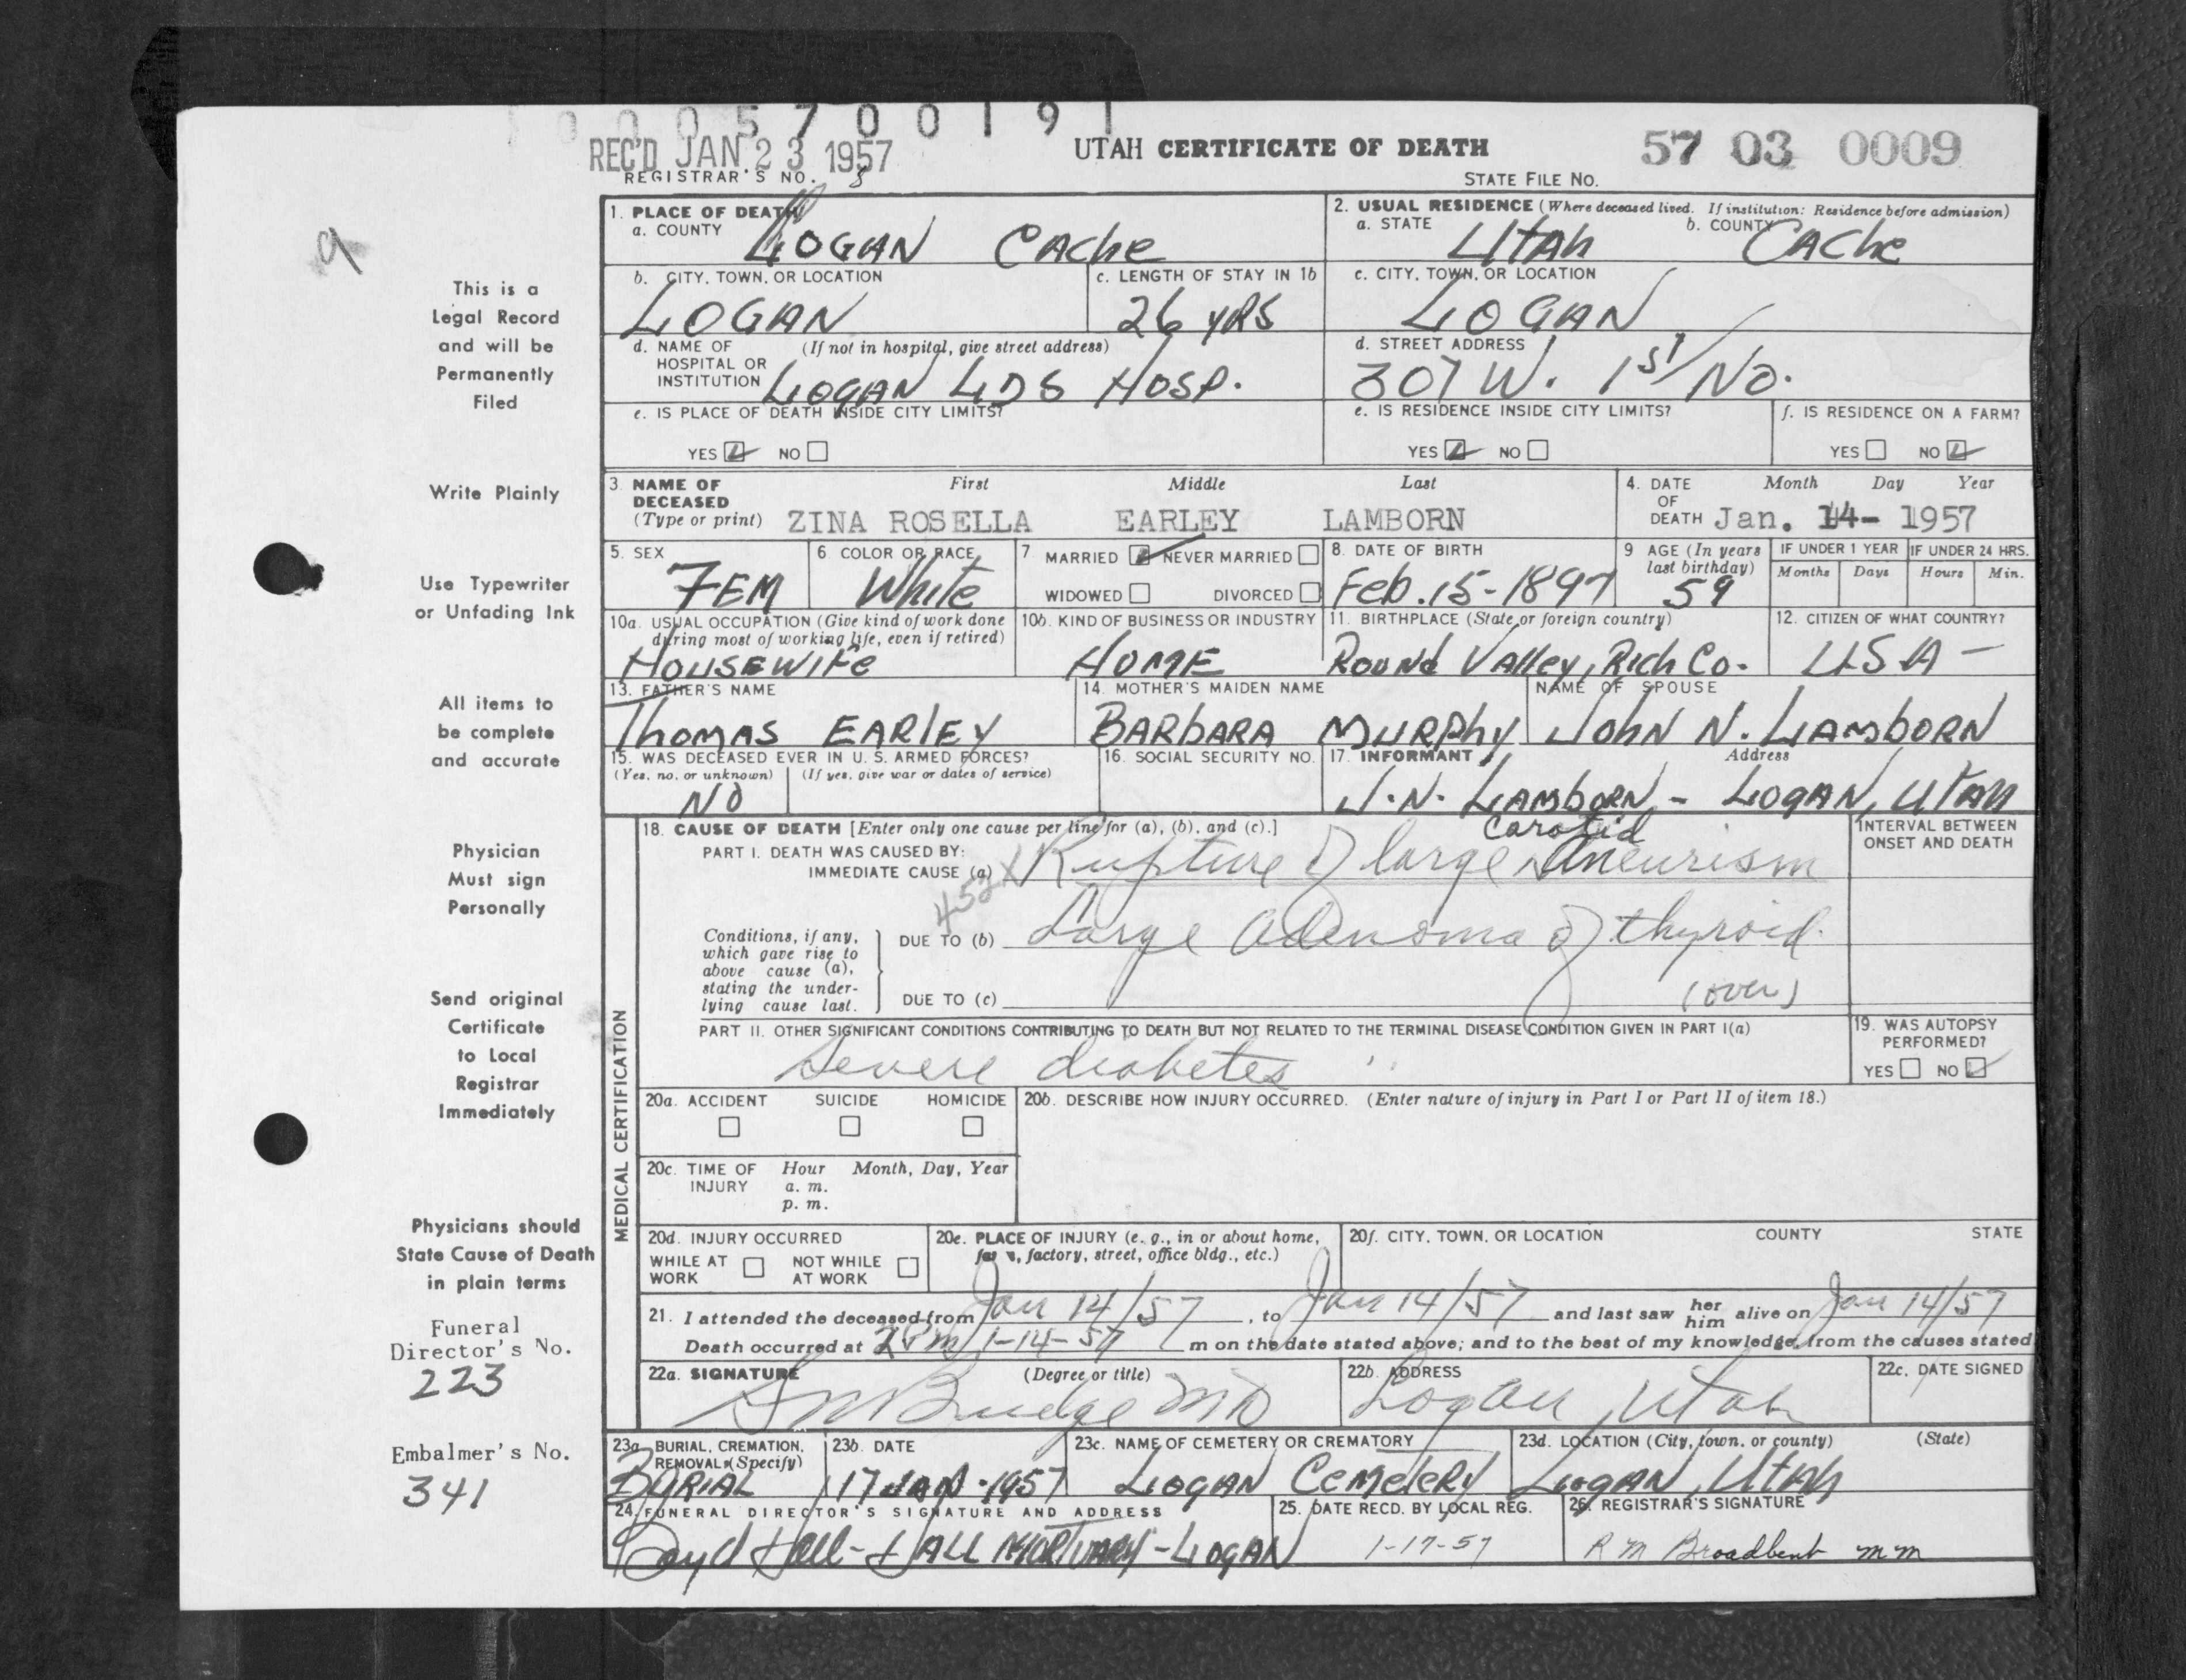 0005700191
REC'D JAN 23 1957
UTAH CERTIFICATE OF DEATH
57 03 0009
REGISTRAR'S NO. 8
STATE FILE NO.
1. PLACE OF DEATH
a. COUNTY LOGAN CAche
2. USUAL RESIDENCE (Where deceased lived. If institution: Residence before admission)
a. STATE Utah b. COUNTY CAche
b. CITY, TOWN, OR LOCATION LOGAN
c. LENGTH OF STAY IN 1b 26 yRS
c. CITY, TOWN, OR LOCATION LOGAN
d. NAME OF HOSPITAL OR INSTITUTION (If not in hospital, give street address) LOGAN LDS HOSP.
d. STREET ADDRESS 307 W. 1st No.
e. IS PLACE OF DEATH INSIDE CITY LIMITS?
YES NO
e. IS RESIDENCE INSIDE CITY LIMITS?
YES NO
f. IS RESIDENCE ON A FARM?
YES NO
3. NAME OF DECEASED (Type or print)
First Middle Last
ZINA ROSELLA EARLEY LAMBORN
4. DATE OF DEATH
Month Day Year
Jan. 14- 1957
5. SEX FEM
6 COLOR OR RACE White
7 MARRIED NEVER MARRIED
WIDOWED DIVORCED
8. DATE OF BIRTH Feb. 15-1897
9 AGE (In years last birthday) 59
IF UNDER 1 YEAR
Months Days
IF UNDER 24 HRS.
Hours Min.
10a. USUAL OCCUPATION (Give kind of work done during most of working life, even if retired)
HOUSEWIFE
10b. KIND OF BUSINESS OR INDUSTRY
HOME
11. BIRTHPLACE (State or foreign country)
Round Valley, Rich Co.
12. CITIZEN OF WHAT COUNTRY?
USA -
13. FATHER'S NAME
Thomas EARLEY
14. MOTHER'S MAIDEN NAME
BARBARA MURPhy
NAME OF SPOUSE
John N. LAMBORN
15. WAS DECEASED EVER IN U. S. ARMED FORCES?
(Yes, no, or unknown) (If yes, give war or dates of service)
NO
16. SOCIAL SECURITY NO.
17. INFORMANT Address
J. N. LAMBORN - LOGAN, UTAH
MEDICAL CERTIFICATION
18. CAUSE OF DEATH [Enter only one cause per line for (a), (b), and (c).]
INTERVAL BETWEEN ONSET AND DEATH
PART I. DEATH WAS CAUSED BY:
IMMEDIATE CAUSE (a) Rupture of large carotid aneurism
452X
Conditions, if any, which gave rise to above cause (a), stating the underlying cause last.
DUE TO (b) Large adenoma of thyroid.
DUE TO (c) (over)
PART II. OTHER SIGNIFICANT CONDITIONS CONTRIBUTING TO DEATH BUT NOT RELATED TO THE TERMINAL DISEASE CONDITION GIVEN IN PART I(a)
Severe diabetes
19. WAS AUTOPSY PERFORMED?
YES NO
20a. ACCIDENT SUICIDE HOMICIDE
20b. DESCRIBE HOW INJURY OCCURRED. (Enter nature of injury in Part I or Part II of item 18.)
20c. TIME OF INJURY Hour Month, Day, Year
a. m.
p. m.
20d. INJURY OCCURRED
WHILE AT WORK NOT WHILE AT WORK
20e. PLACE OF INJURY (e. g., in or about home, farm, factory, street, office bldg., etc.)
20f. CITY, TOWN, OR LOCATION COUNTY STATE
21. I attended the deceased from Jan 14/57, to Jan 14/57 and last saw her him alive on Jan 14/57
Death occurred at 2 Pm 1-14-57 m on the date stated above; and to the best of my knowledge, from the causes stated
22a. SIGNATURE (Degree or title)
Budge MD
22b. ADDRESS
Logan, Utah
22c. DATE SIGNED
23a. BURIAL, CREMATION, REMOVAL (Specify)
BURIAL
23b. DATE
17 JAN. 1957
23c. NAME OF CEMETERY OR CREMATORY
LOGAN CEMETERY
23d. LOCATION (City, town, or county) (State)
LOGAN, UTAH
24. FUNERAL DIRECTOR'S SIGNATURE AND ADDRESS
Boyd Hall - HALL MORTUARY - LOGAN
25. DATE RECD. BY LOCAL REG.
1-17-57
26. REGISTRAR'S SIGNATURE
R M Broadbent mm
9
This is a
Legal Record
and will be
Permanently
Filed
Write Plainly
Use Typewriter
or Unfading Ink
All items to
be complete
and accurate
Physician
Must sign
Personally
Send original
Certificate
to Local
Registrar
Immediately
Physicians should
State Cause of Death
in plain terms
Funeral
Director's No.
223
Embalmer's No.
341